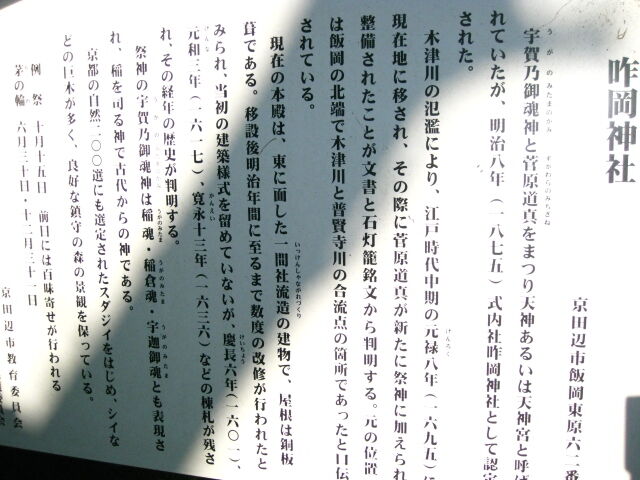 咋岡神社
京田辺市飯岡東原六二番
うがのみたまのかみ すがわらのみちざね
宇賀乃御魂神と菅原道真をまつり天神あるいは天神宮と呼ば
れていたが、明治八年（一八七五）式内社咋岡神社として認定
された。
げんろく
木津川の氾濫により、江戸時代中期の元禄八年（一六九五）に
現在地に移され、その際に菅原道真が新たに祭神に加えられ
整備されたことが文書と石灯籠銘文から判明する。元の位置
は飯岡の北端で木津川と普賢寺川の合流点の箇所であったと口伝
されている。
いっけんしゃながれづくり
現在の本殿は、東に面した一間社流造の建物で、屋根は銅板
葺である。移設後明治年間に至るまで数度の改修が行われたと
けいちょう
みられ、当初の建築様式を留めていないが、慶長六年（一六〇一）、
げんな かんえい
元和三年（一六一七）、寛永十三年（一六三六）などの棟札が残さ
れ、その経年の歴史が判明する。
うがのみたま うがのみたま うがのみたま
祭神の宇賀乃御魂神は稲魂・稲倉魂・宇迦御魂とも表現さ
れ、稲を司る神で古代からの神である。
京都の自然二〇〇選にも選定されたスダジイをはじめ、シイな
どの巨木が多く、良好な鎮守の森の景観を保っている。
例祭 十月十五日 前日には百味寄せが行われる
茅の輪 六月三十日・十二月三十一日
京田辺市教育委員会